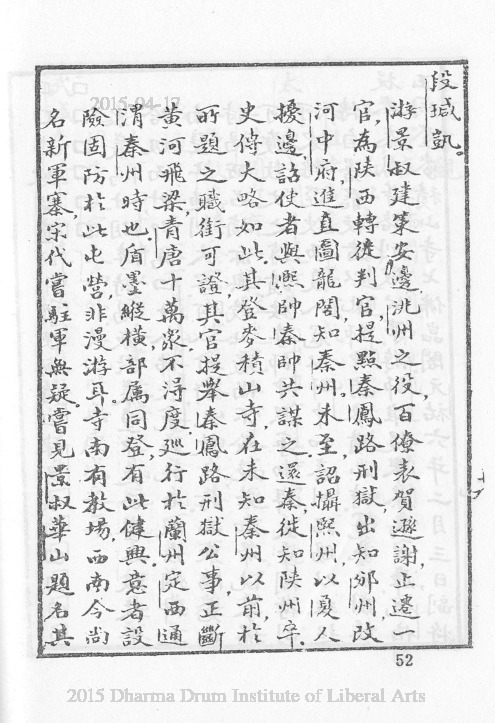 段㻽凱。
游景叔建策安邊洮州之役百僚表賀遜謝止遷一
官為陝西轉徙判官提點秦鳳路刑獄出知邠州改
河中府進直圖龍閣知秦州未至詔攝熙州以夏人
擾邊詔使者與熙帥秦帥共謀之還秦徙知陝州卒
史傳大略如此其登麥積山寺在未知秦州以前於
所題之職銜可證其官提舉秦鳳路刑獄公事正斷
黃河飛梁青唐十萬衆不得度巡行於蘭州定西通
渭秦州時也盾墨縱橫部屬同登有此健興意者設
險固防於此屯營非漫游耳寺南有教場西南今尚
名新軍寨宋代嘗駐軍無疑嘗見景叔華山題名其
52
2015-04-17
2015 Dharma Drum Institute of Liberal Arts